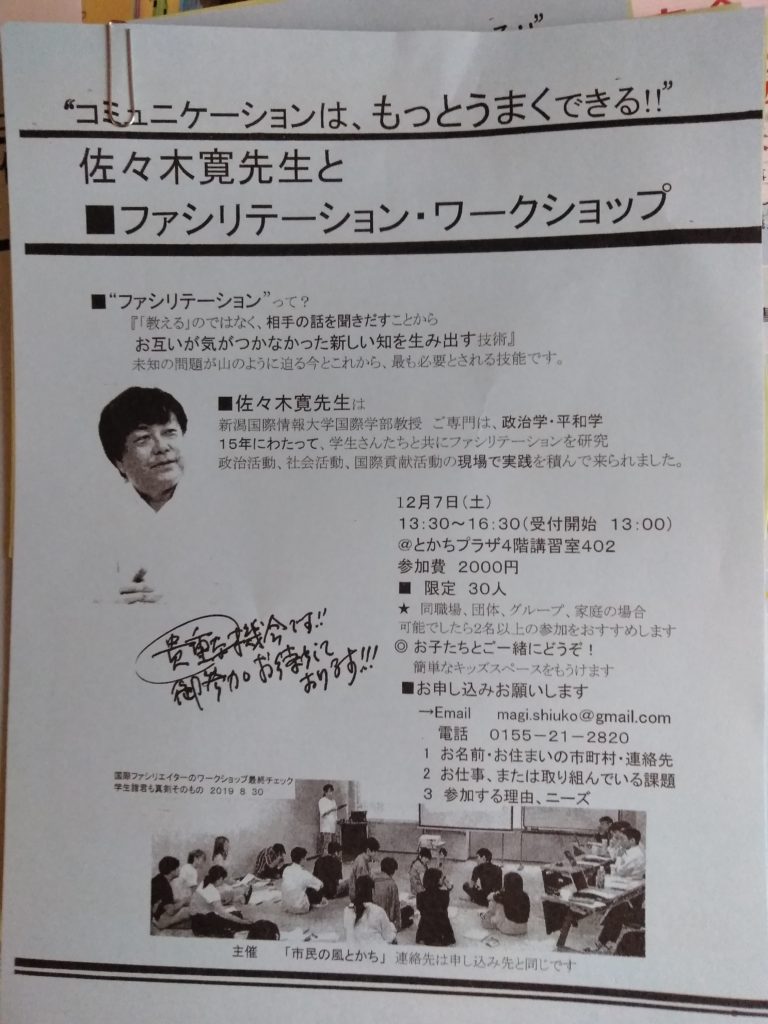 “コミュニケーションは、もっとうまくできる!!”
佐々木寛先生と
■ファシリテーション・ワークショップ
■“ファシリテーション”って？
『「教える」のではなく、相手の話を聞きだすことから
お互いが気がつかなかった新しい知を生み出す技術』
未知の問題が山のように迫る今とこれから、最も必要とされる技能です。
■佐々木寛先生は
新潟国際情報大学国際学部教授 ご専門は、政治学・平和学
15年にわたって、学生さんたちと共にファシリテーションを研究
政治活動、社会活動、国際貢献活動の現場で実践を積んで来られました。
12月7日（土）
13：30～16：30（受付開始 13：00）
＠とかちプラザ4階講習室402
参加費 2000円
■ 限定 30人
★ 同職場、団体、グループ、家庭の場合
可能でしたら2名以上の参加をおすすめします
◎ お子たちとご一緒にどうぞ！
簡単なキッズスペースをもうけます
■お申し込みお願いします
→Email magi.shiuko@gmail.com
電話 0155－21－2820
1 お名前・お住まいの市町村・連絡先
2 お仕事、または取り組んでいる課題
3 参加する理由、ニーズ
貴重な機会です!!
御参加。お待ちして
おります!!!
国際ファシリエイターのワークショップ最終チェック
学生諸君も真剣そのもの 2019 8 30
主催 「市民の風とかち」 連絡先は申し込み先と同じです